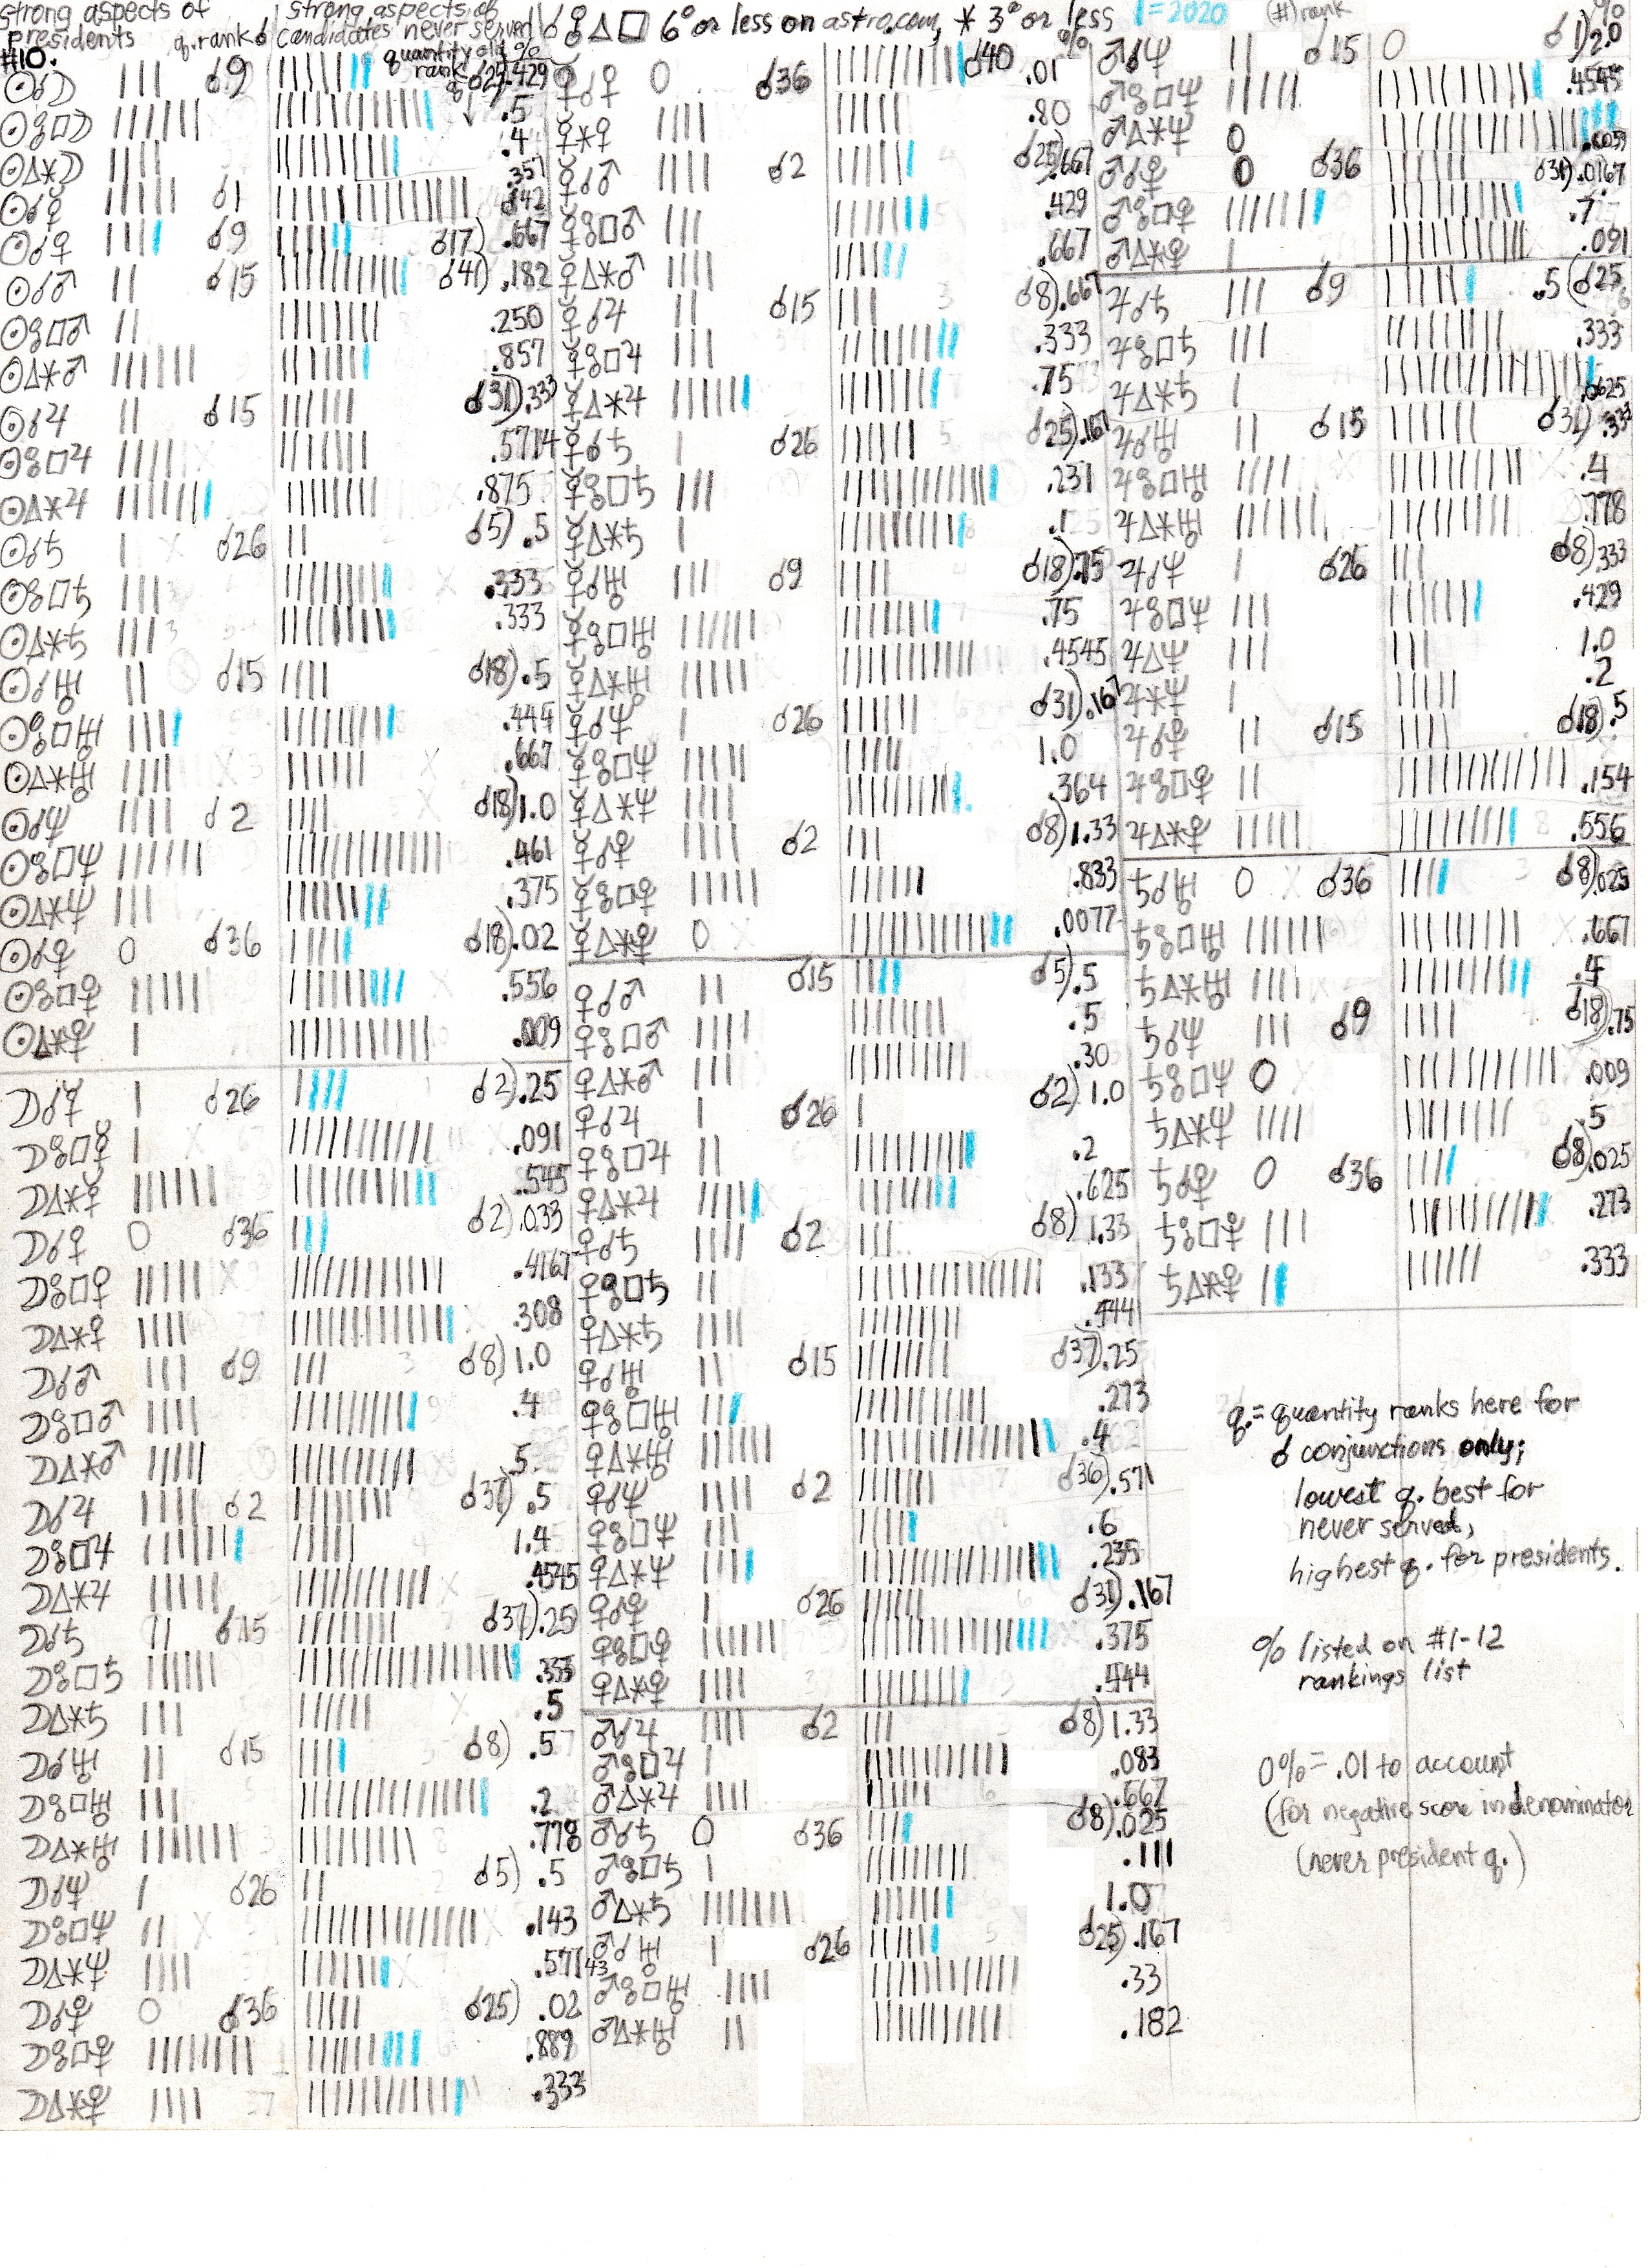 strong aspects of presidents q.rank ☌
strong aspects of candidates never served
☌ ☍ △ □ 6° or less on astro.com, ⚹ 3° or less
l = 2020 (#) rank
#10.
quantity old % rank
☉☌☽ ☌9 ☌25) .429
☉☍□☽ .5
☉△⚹☽ .4
☉☌☿ ☌1 .357
☉☌♀ ☌9 ☌17) .667
☉☌♂ ☌15 ☌41) .182
☉☍□♂ .250
☉△⚹♂ .857
☉☌♃ ☌15 ☌31) .333
☉☍□♃ .5714
☉△⚹♃ .875
☉☌♄ ☌26 ☌5) .5
☉☍□♄ .333
☉△⚹♄ .333
☉☌♅ ☌15 ☌18) .5
☉☍□♅ .444
☉△⚹♅ .667
☉☌♆ ☌2 ☌18) 1.0
☉☍□♆ .461
☉△⚹♆ .375
☉☌♇ 0 ☌36 ☌18) .02
☉☍□♇ .556
☉△⚹♇ .009
☽☌☿ ☌26 ☌2) .25
☽☍□☿ .091
☽△⚹☿ .545
☽☌♀ 0 ☌36 ☌2) .033
☽☍□♀ .4167
☽△⚹♀ .308
☽☌♂ ☌9 ☌8) 1.0
☽☍□♂ .4
☽△⚹♂ .5
☽☌♃ ☌2 ☌37) .5
☽☍□♃ 1.4
☽△⚹♃ .4545
☽☌♄ ☌15 ☌37) .25
☽☍□♄ .333
☽△⚹♄ .5
☽☌♅ ☌15 ☌8) .5
☽☍□♅ .2
☽△⚹♅ .778
☽☌♆ ☌26 ☌5) .5
☽☍□♆ .143
☽△⚹♆ .571
☽☌♇ 0 ☌36 ☌25) .02
☽☍□♇ .889
☽△⚹♇ .333
☿☌♀ 0 ☌36 ☌40 .01
☿⚹♀ .80
☿☌♂ ☌2 ☌25) .667
☿☍□♂ .429
☿△⚹♂ .667
☿☌♃ ☌15 ☌8) .667
☿☍□♃ .333
☿△⚹♃ .75
☿☌♄ ☌26 ☌25) .167
☿☍□♄ .231
☿△⚹♄ .1
☿☌♅ ☌9 ☌18) .75
☿☍□♅ .75
☿△⚹♅ .4545
☿☌♆ ☌26 ☌31) .167
☿☍□♆ 1.0
☿△⚹♆ .364
☿☌♇ ☌2 ☌8) 1.33
☿☍□♇ .833
☿△⚹♇ 0 .0077
♀☌♂ ☌15 ☌5) .5
♀☍□♂ .5
♀△⚹♂ .30
♀☌♃ ☌26 ☌2) 1.0
♀☍□♃ .2
♀△⚹♃ .625
♀☌♄ ☌2 ☌8) 1.33
♀☍□♄ .133
♀△⚹♄ .444
♀☌♅ ☌15 ☌37) .25
♀☍□♅ .273
♀△⚹♅ .4
♀☌♆ ☌2 ☌36) .571
♀☍□♆ .6
♀△⚹♆ .235
♀☌♇ ☌26 ☌31) .167
♀☍□♇ .375
♀△⚹♇ .444
♂☌♃ ☌2 ☌8) 1.33
♂☍□♃ .083
♂△⚹♃ .667
♂☌♄ 0 ☌36 ☌8) .025
♂☍□♄ .111
♂△⚹♄ 1.0
♂☌♅ ☌26 ☌25) .167
♂☍□♅ .33
♂△⚹♅ .182
%
♂☌♆ ☌15 0 ☌1) 2.0
♂☍□♆ .4545
♂△⚹♆ 0
♂☌♇ 0 ☌36 ☌31) .0167
♂☍□♇ .7
♂△⚹♇ .091
♃☌♄ ☌9 .5 (☌25
♃☍□♄ .333
♃△⚹♄ .0625
♃☌♅ ☌15 ☌31) .333
♃☍□♅ .4
♃△⚹♅ .778
♃☌♆ ☌26 ☌8) .333
♃☍□♆ .429
♃△♆ 1.0
♃⚹♆ .2
♃☌♇ ☌15 ☌18) .5
♃☍□♇ .154
♃△⚹♇ .556
♄☌♅ 0 ☌36 ☌8) .025
♄☍□♅ .667
♄△⚹♅ .4
♄☌♆ ☌9 ☌18) .75
♄☍□♆ 0 .009
♄△⚹♆ .5
♄☌♇ 0 ☌36 ☌8) .025
♄☍□♇ .273
♄△⚹♇ .333
q.= quantity ranks here for
☌ conjunctions only;
lowest q. best for
never served,
highest q. for presidents.
% listed on #1-12
rankings list
0% = .01 to account
(for negative score in denominator
(never president q.)